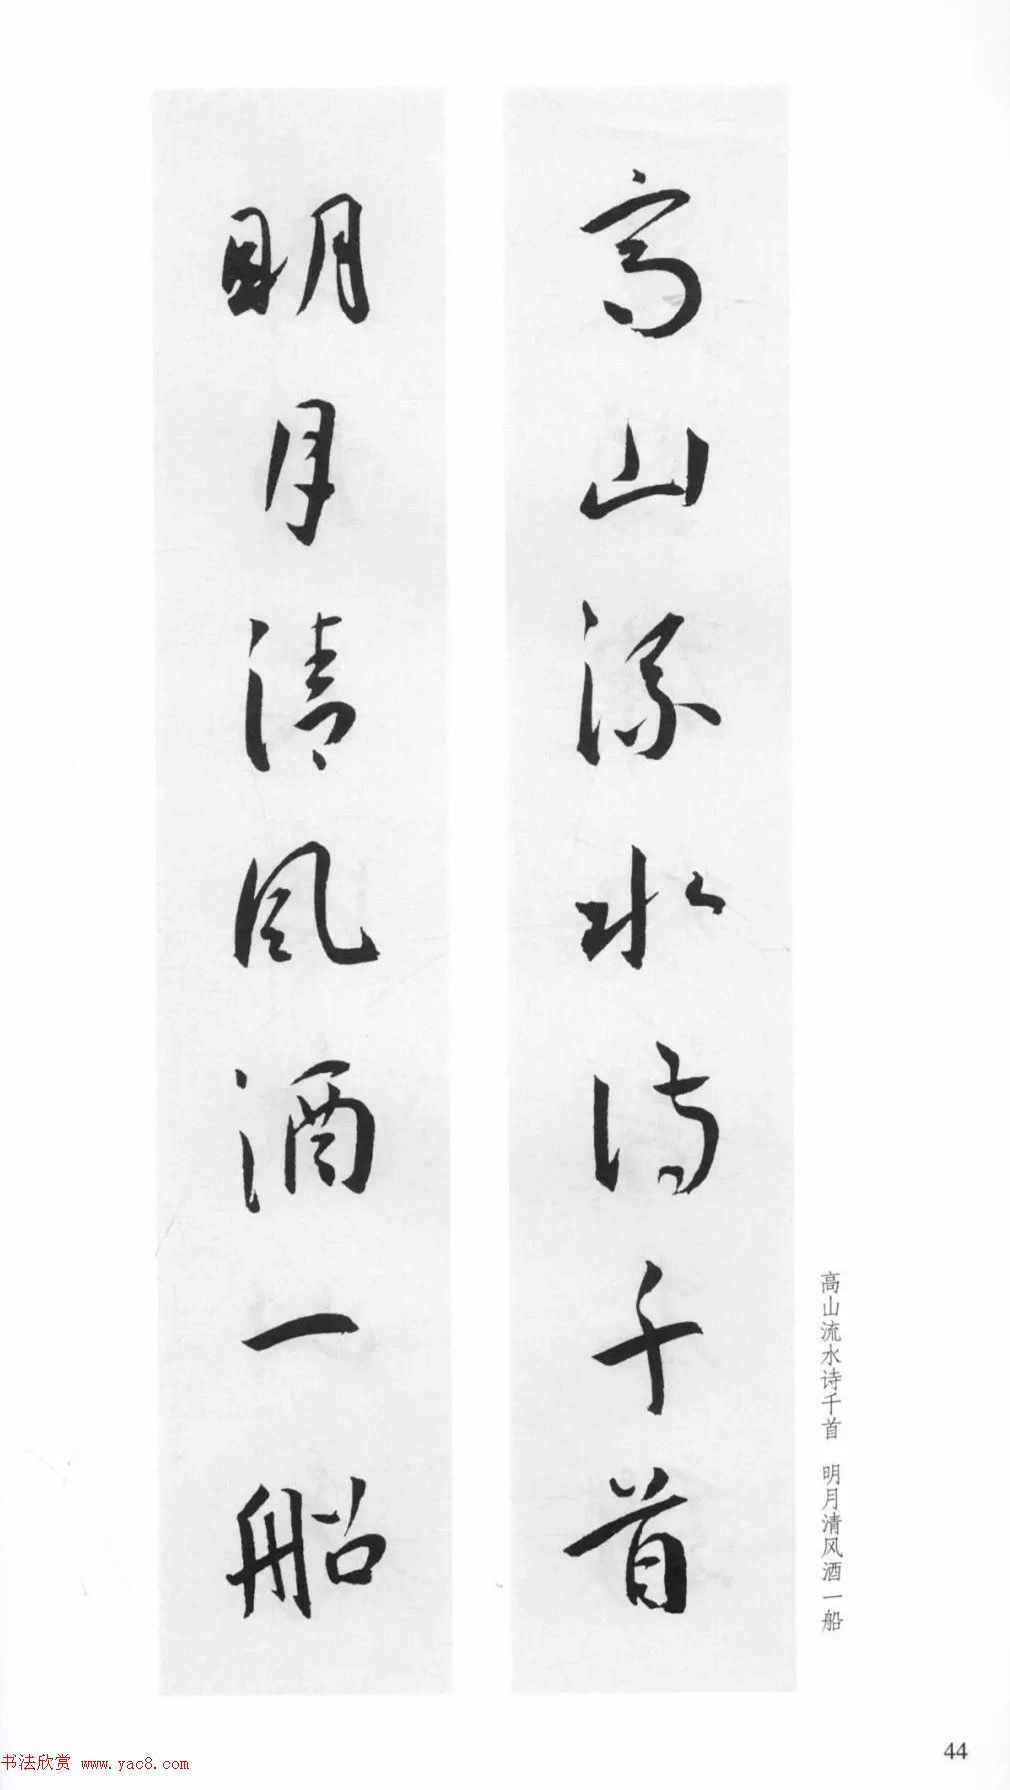 高山流水诗千首
明月清风酒一船
高山流水诗千首　明月清风酒一船
44
书法欣赏 www.yac8.com